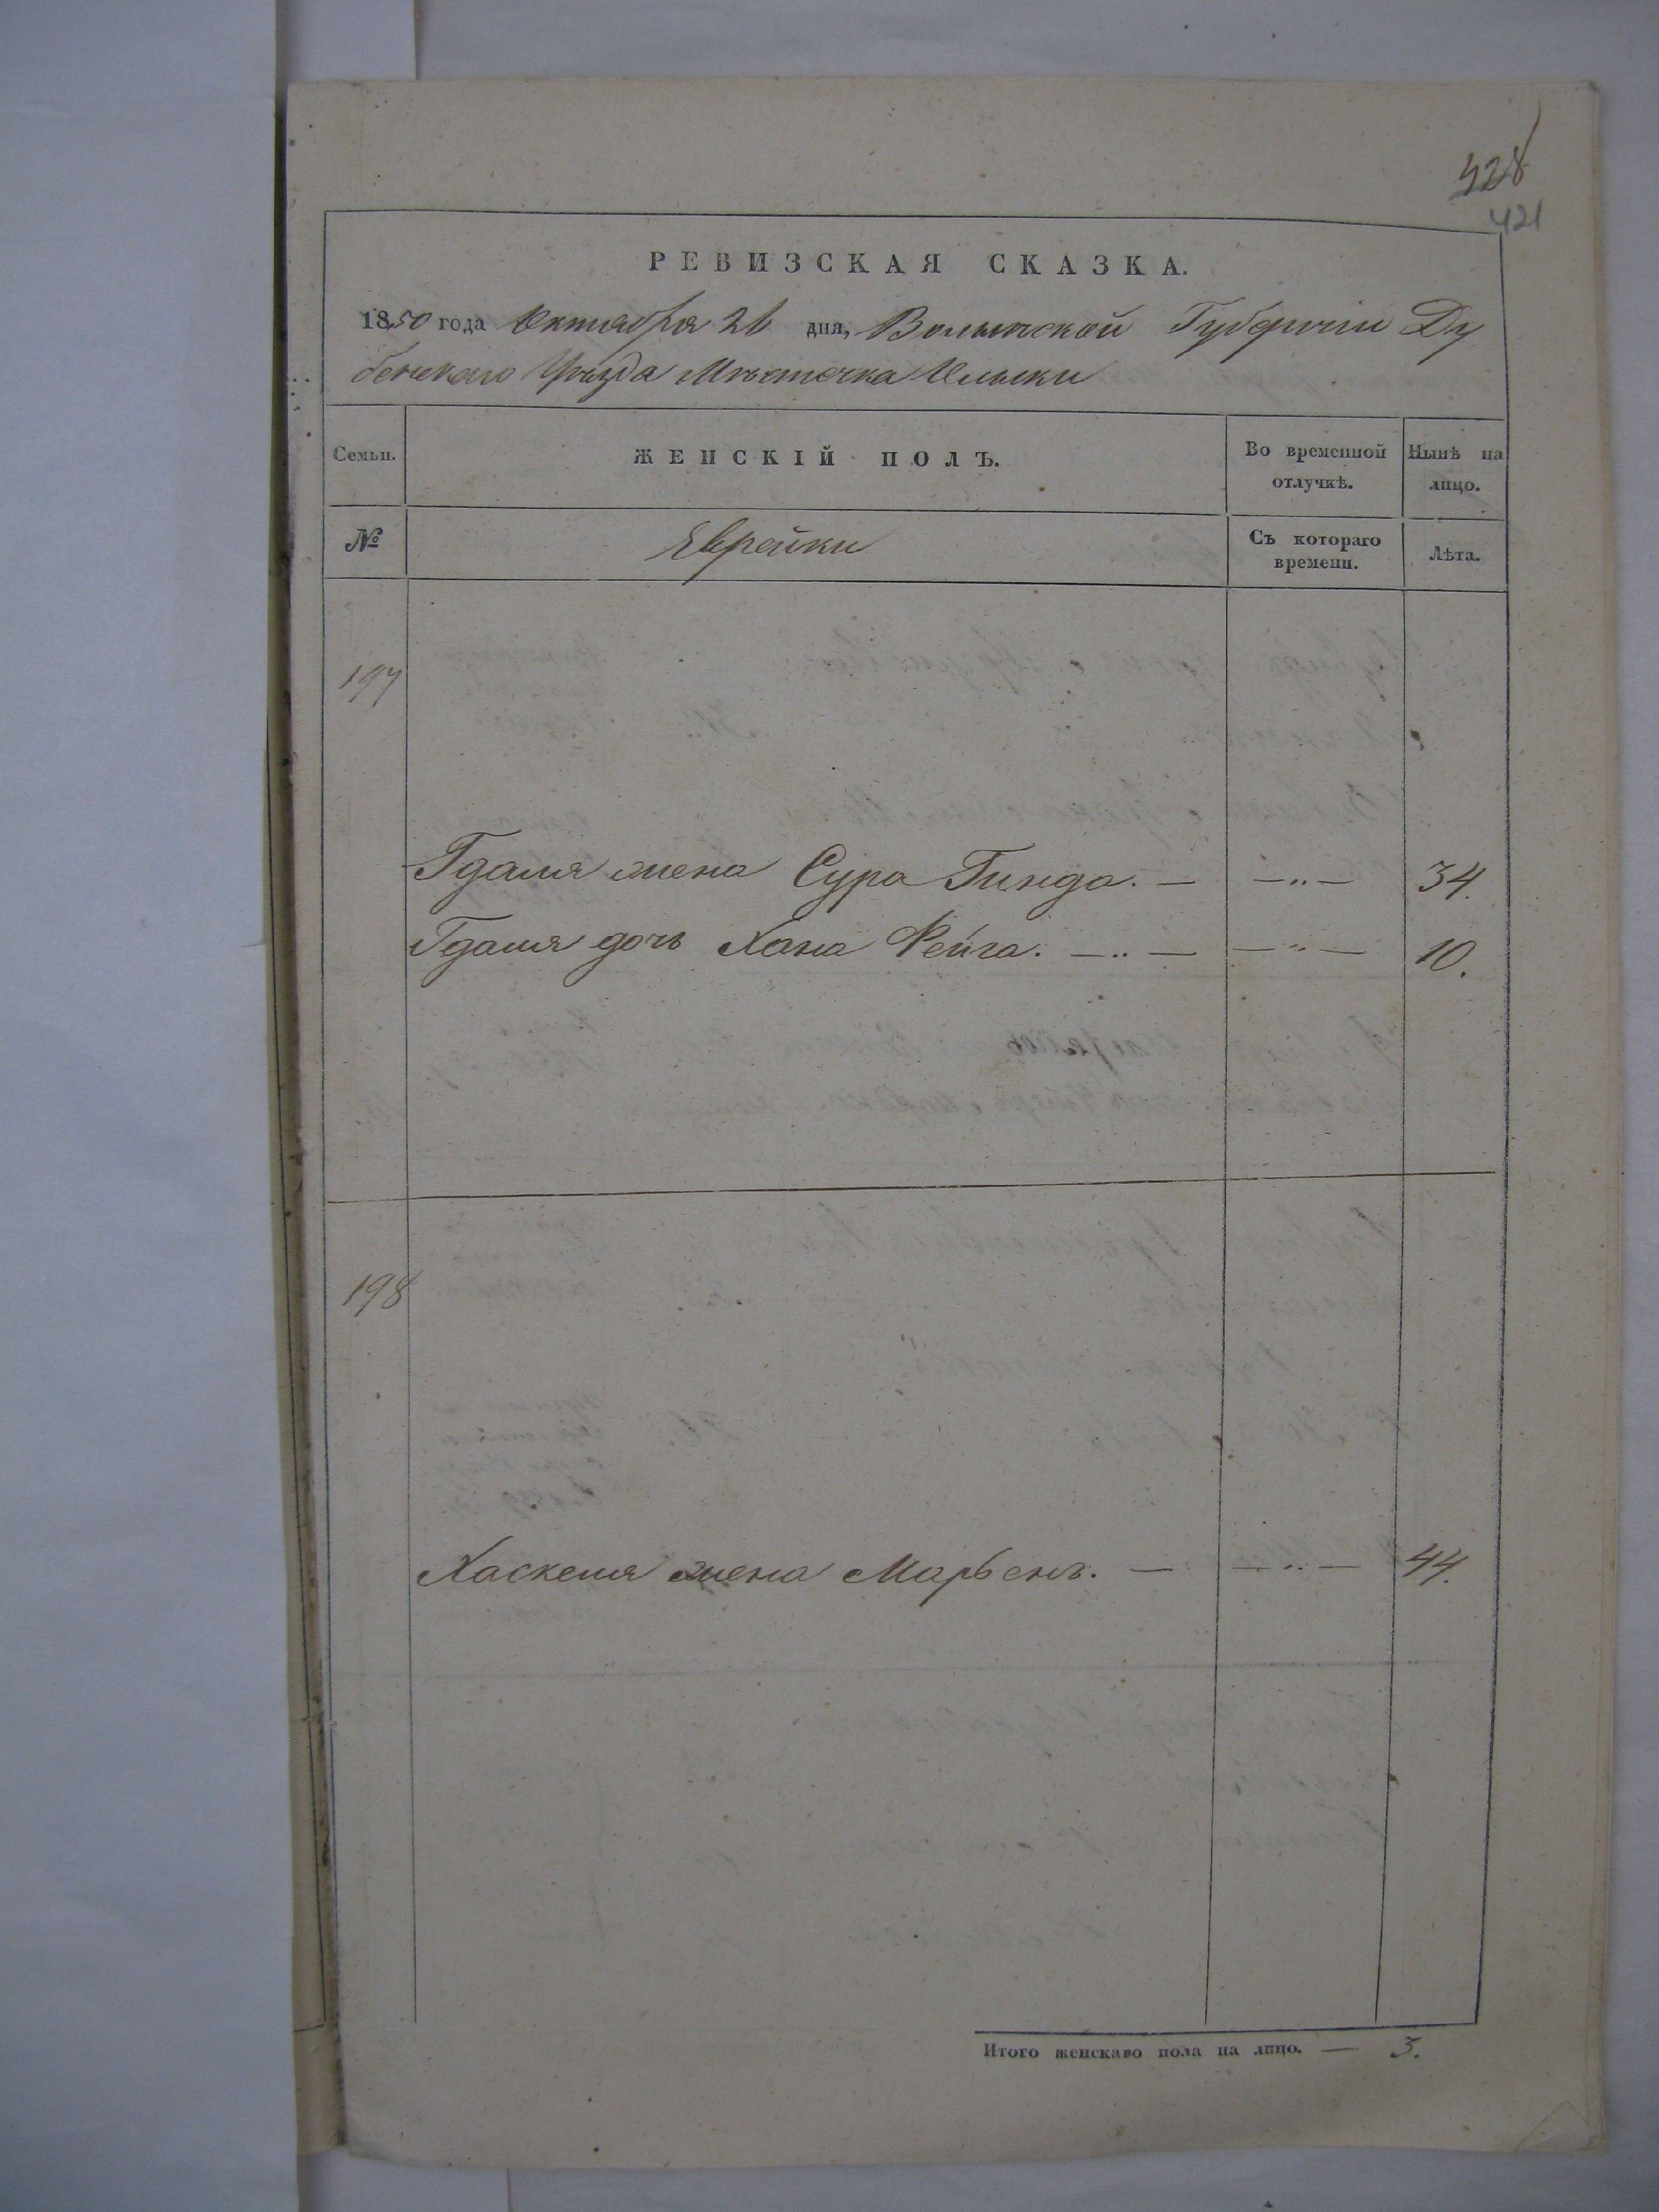 428
421
РЕВИЗСКАЯ СКАЗКА.
1850 года Октября 26 дня, Волынской Губерніи Ду
бенскаго Уѣзда Мѣстечка Олыки
Семьи. ЖЕНСКІЙ ПОЛЪ. Во временной отлучкѣ. Нынѣ на лицо.
№ Еврейки Съ котораго времени. Лѣта.
197
Гдаля жена Сура Гинда. — —„— 34.
Гдаля дочь Хана Фейга. —„— —„— 10.
198
Хаскеля жена Марьемъ. — —„— 44.
Итого женскаго пола на лицо. — 3.